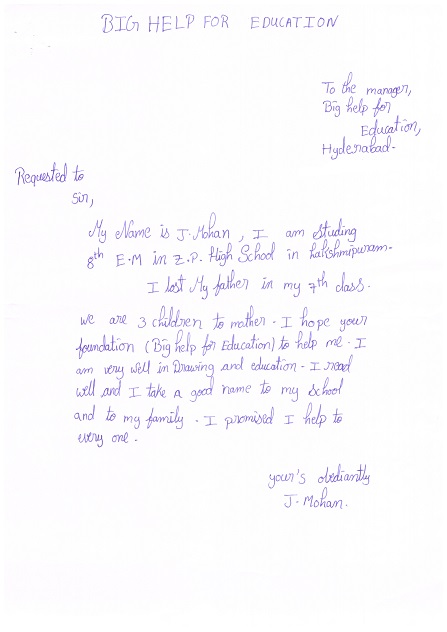 BIG HELP FOR EDUCATION
To the manager,
Big help for
Education,
Hyderabad.
Requested to
Sir,
My Name is J. Mohan, I am Studing
8th E.M in Z.P. High School in Lakshmipuram.
I lost My father in my 7th class.
we are 3 children to mother. I hope your
foundation (Big help for Education) to help me. I
am very well in Drawing and education. I read
well and I take a good name to my school
and to my family. I promised I help to
every one.
your's obediantly
J. Mohan.